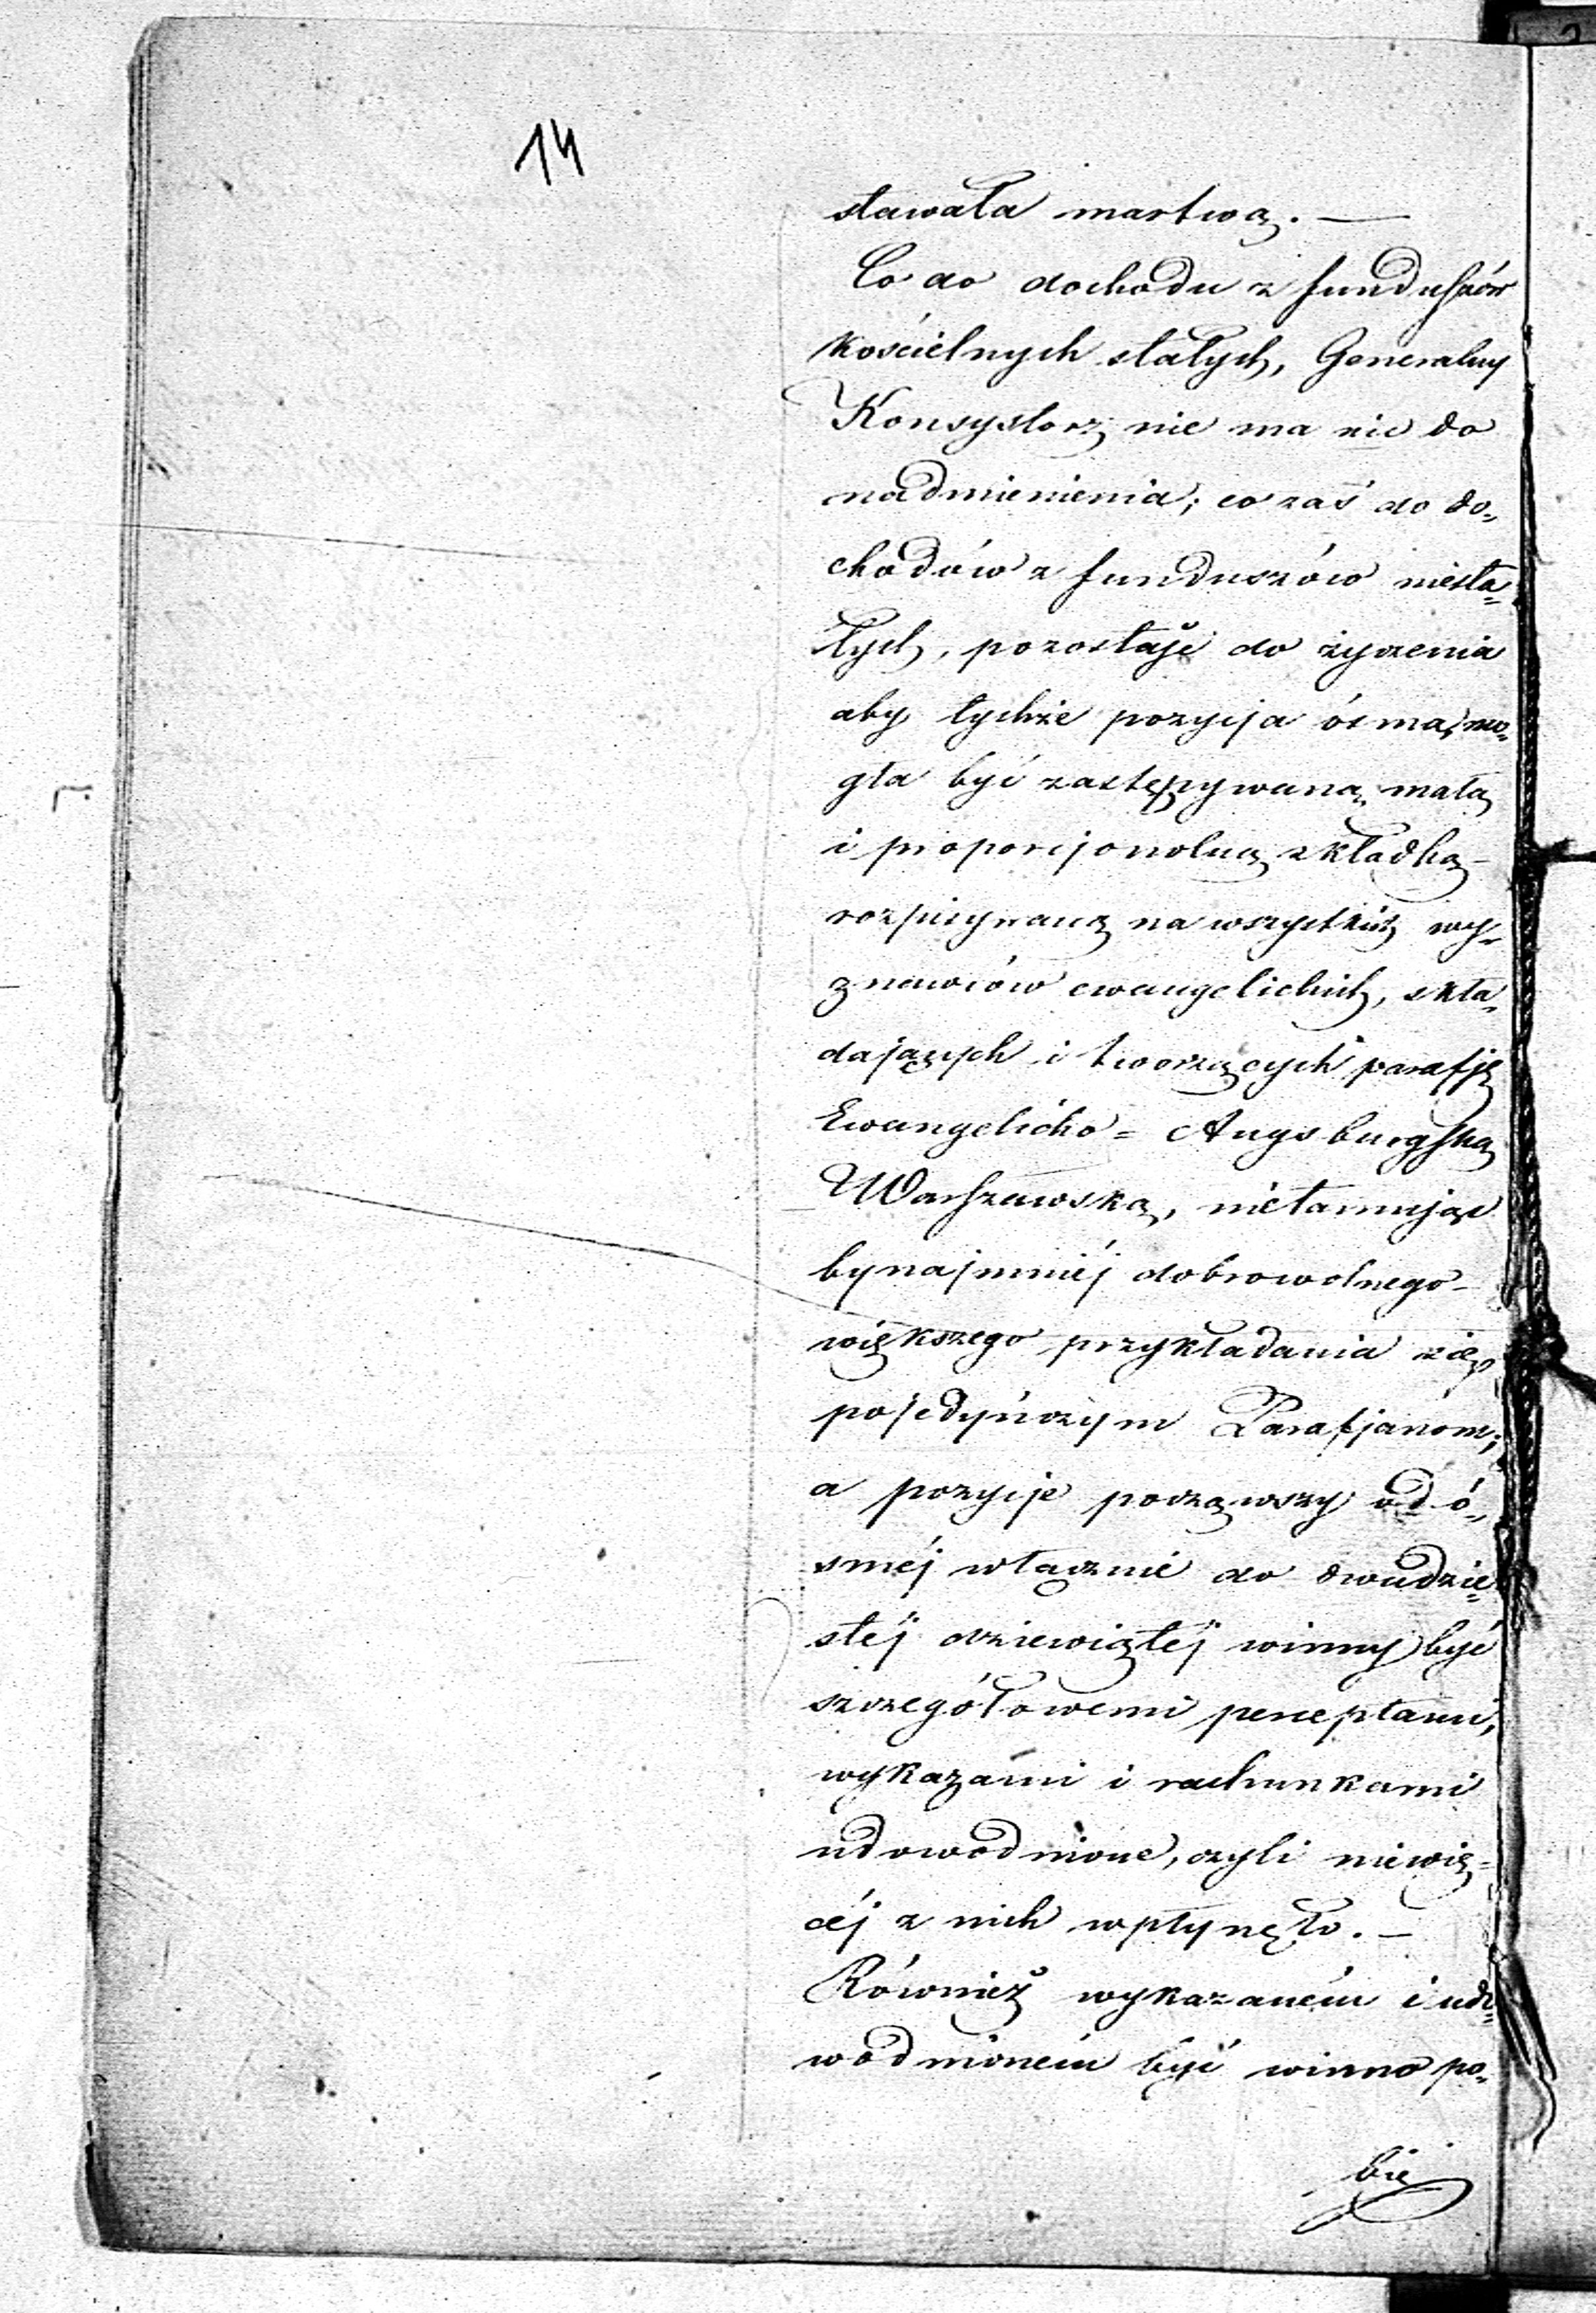 14
stawała martwą. —
Co do dochodu z funduszów
kościelnych stałych, Generalny
Konsystorz nie ma nic do
nadmienienia; co zaś do do„
chodów z funduszów niesta=
łych, pozostaje do życzenia
aby tychże pozycja ósma, mo„
gła być zastępywaną małą
i proporcjonolną składką
rozpisywaną na wszystkich wy=
znawców ewangelickich, skła„
dających i tworzących parafję
Ewangelicko = Augsburgską
Warszawską, nietamując
bynajmniéj dobrowolnego
większego przykładania się
pojedyńczym Parafjanom;
a pozycje począwszy od ó„
sméj włącznie do dwudzie=
stéj dziewiątéj winny być
szczegółowemi perceptami,
wykazami i rachunkami
udowodnione, czyli niewię=
céj z nich wpłynęło. —
Również wykazaném i udo=
wodnioném być winno po„
bie